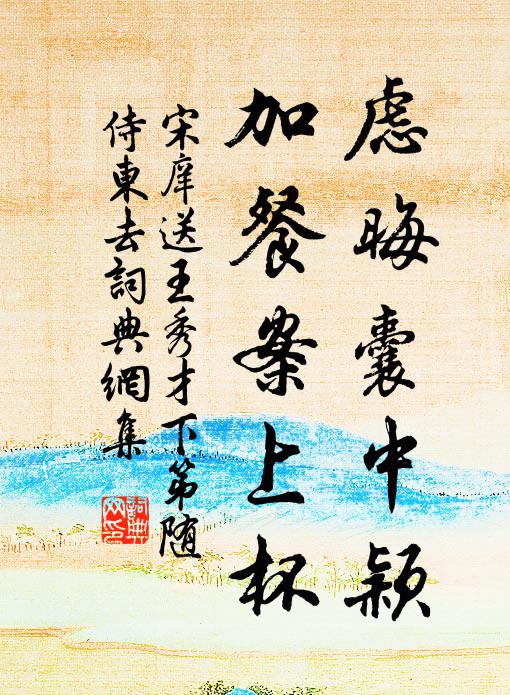 慮晦囊中穎
加餐案上杯
宋庠送王秀才下第随
侍東去詞典網集